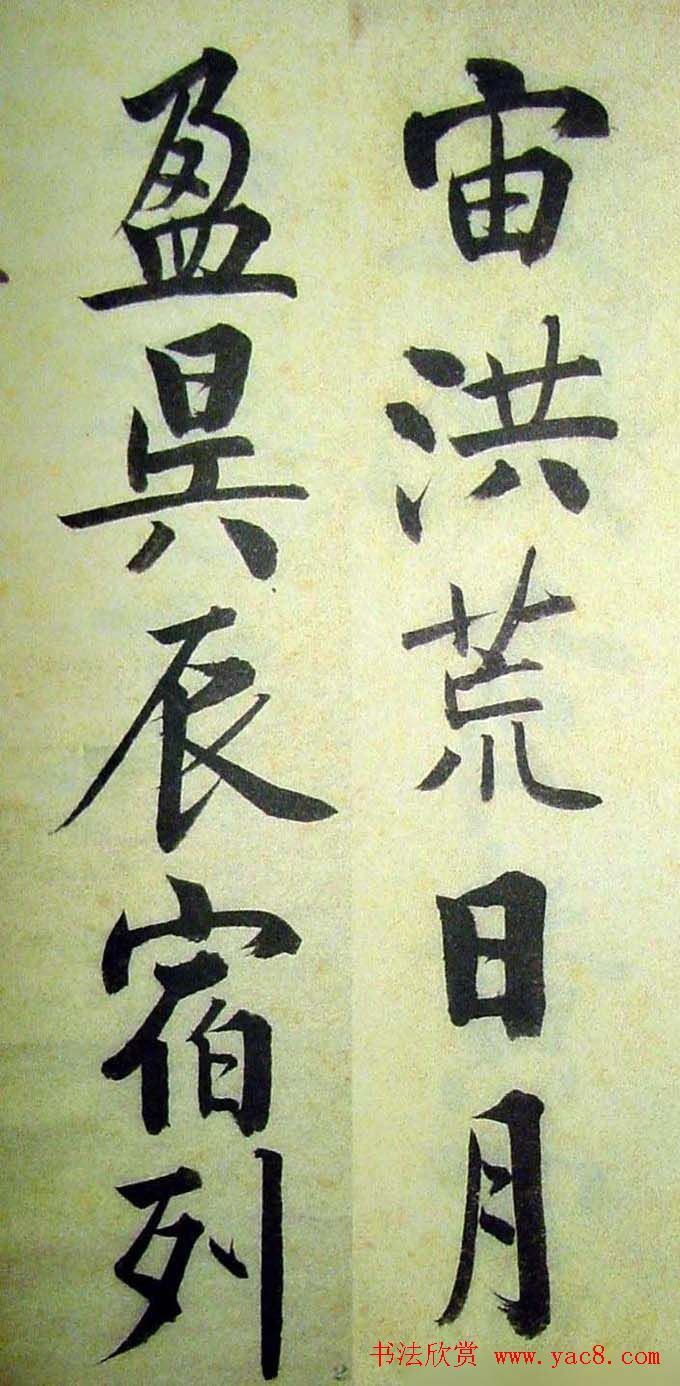 宙洪荒日月
盈昃辰宿列
书法欣赏 www.yac8.com